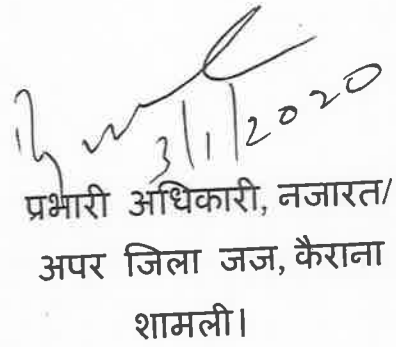 3/1/2020
प्रभारी अधिकारी, नजारत/
अपर जिला जज, कैराना
शामली।